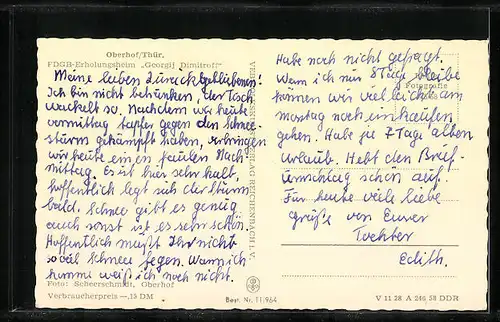 Oberhof/Thür.
FDGB-Erholungsheim „Georgij Dimitroff“
Meine lieben Zurückgebliebenen!
Ich bin nicht betrunken, der Tisch
wackelt so. Nachdem wir heute
vormittag tapfer gegen den Schnee-
sturm gekämpft haben, verbringen
wir heute einen faulen Nach-
mittag. Es ist hier sehr kalt,
hoffentlich legt sich der Sturm
bald. Schnee gibt es genug
auch sonst ist es sehr schön.
Hoffentlich müßt Ihr nicht
soviel Schnee fegen. Wann ich
komme weiß ich noch nicht.
Foto: Scheerschmidt, Oberhof
Verbraucherpreis —,15 DM
Best. Nr. 11/964
Habe noch nicht gefragt.
Wenn ich nur 8 Tage bleibe
können wir vielleicht am
montag noch einkaufen
gehen. Habe je 7 Tage alten
Urlaub. Hebt den Brief-
umschlag schön auf.
Für heute viele liebe
grüße von Eurer
Tochter
Edith.
Fotografie
V 11 28 A 246 58 DDR